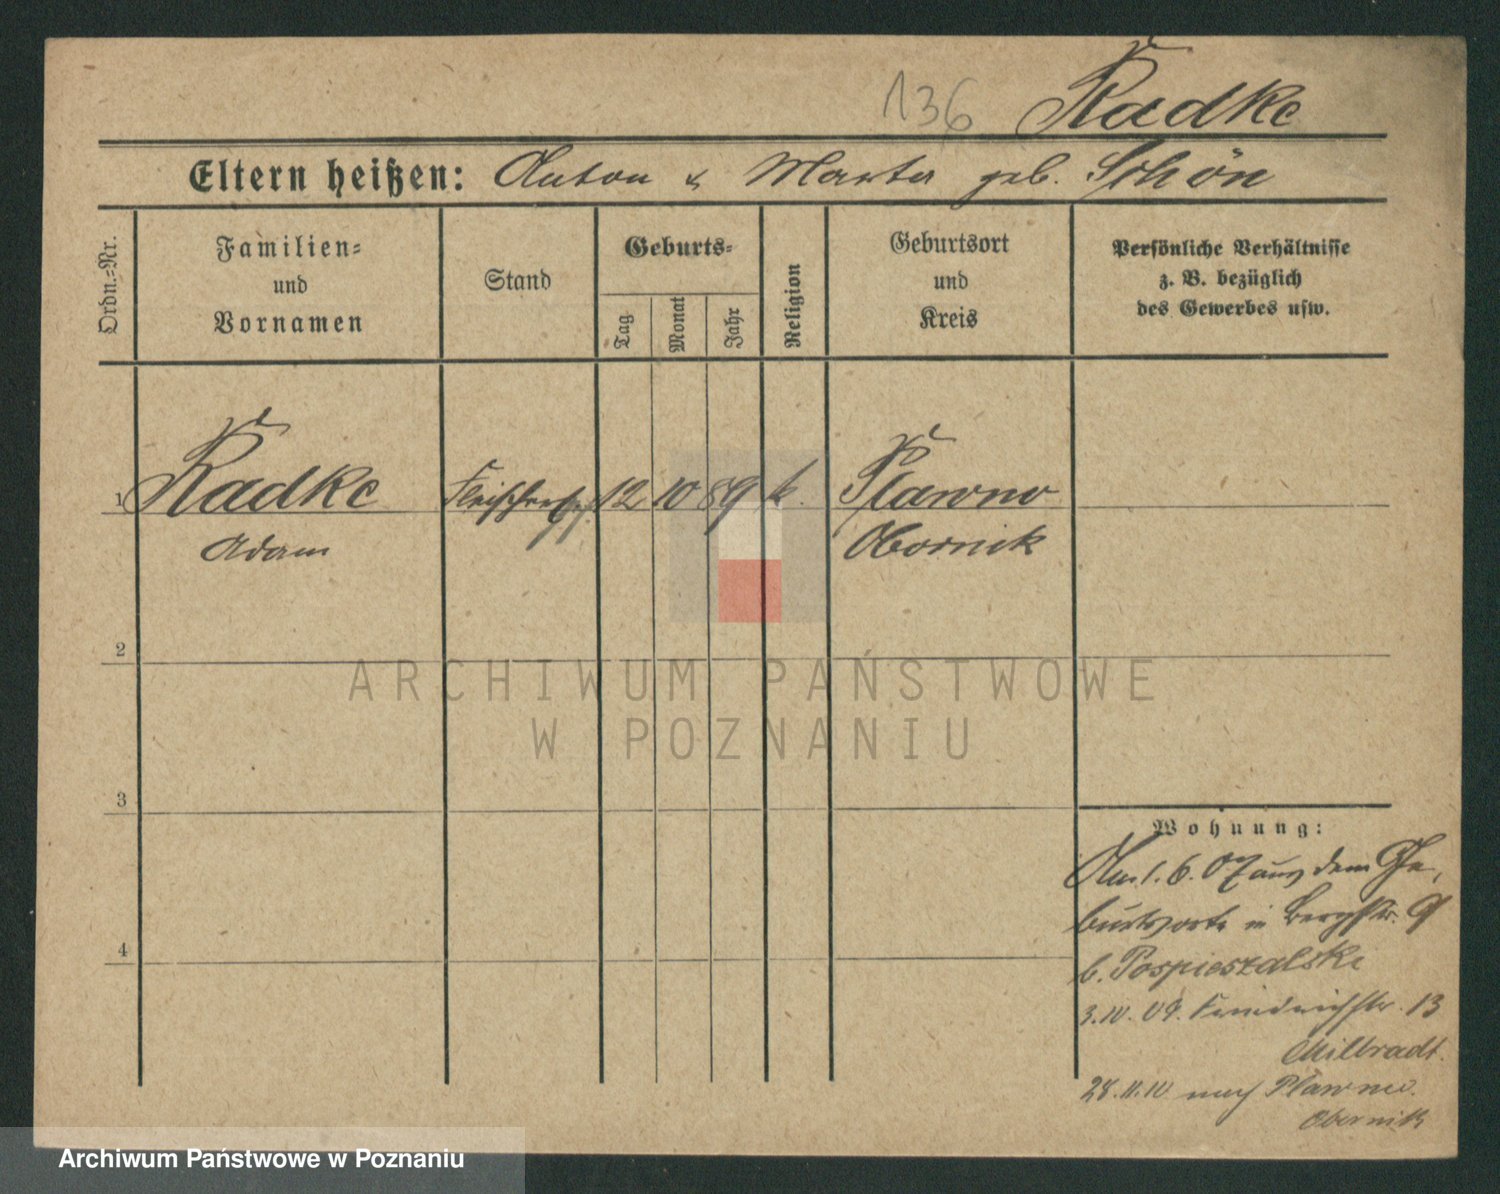 136 Radke
Eltern heißen: Anton & Marta geb. Schön
Ordn.-Nr.
Familien-
und
Vornamen
Stand
Geburts-
Tag
Monat
Jahr
Religion
Geburtsort
und
Kreis
Persönliche Verhältnisse
z. B. bezüglich
des Gewerbes usw.
1 Radke Fleischerges. 12 10 89 k. Plawno
Adam Obornik
2
ARCHIWUM PAŃSTWOWE
W POZNANIU
3
Wohnung:
Am 1. 6. 07 aus dem Ge-
burtsorte in Bergstr. 9
b. Pospieszalski
3.10.09. Friedrichstr. 13
Milbradt.
4
28.11.10 nach Plawno.
Obornik
Archiwum Państwowe w Poznaniu